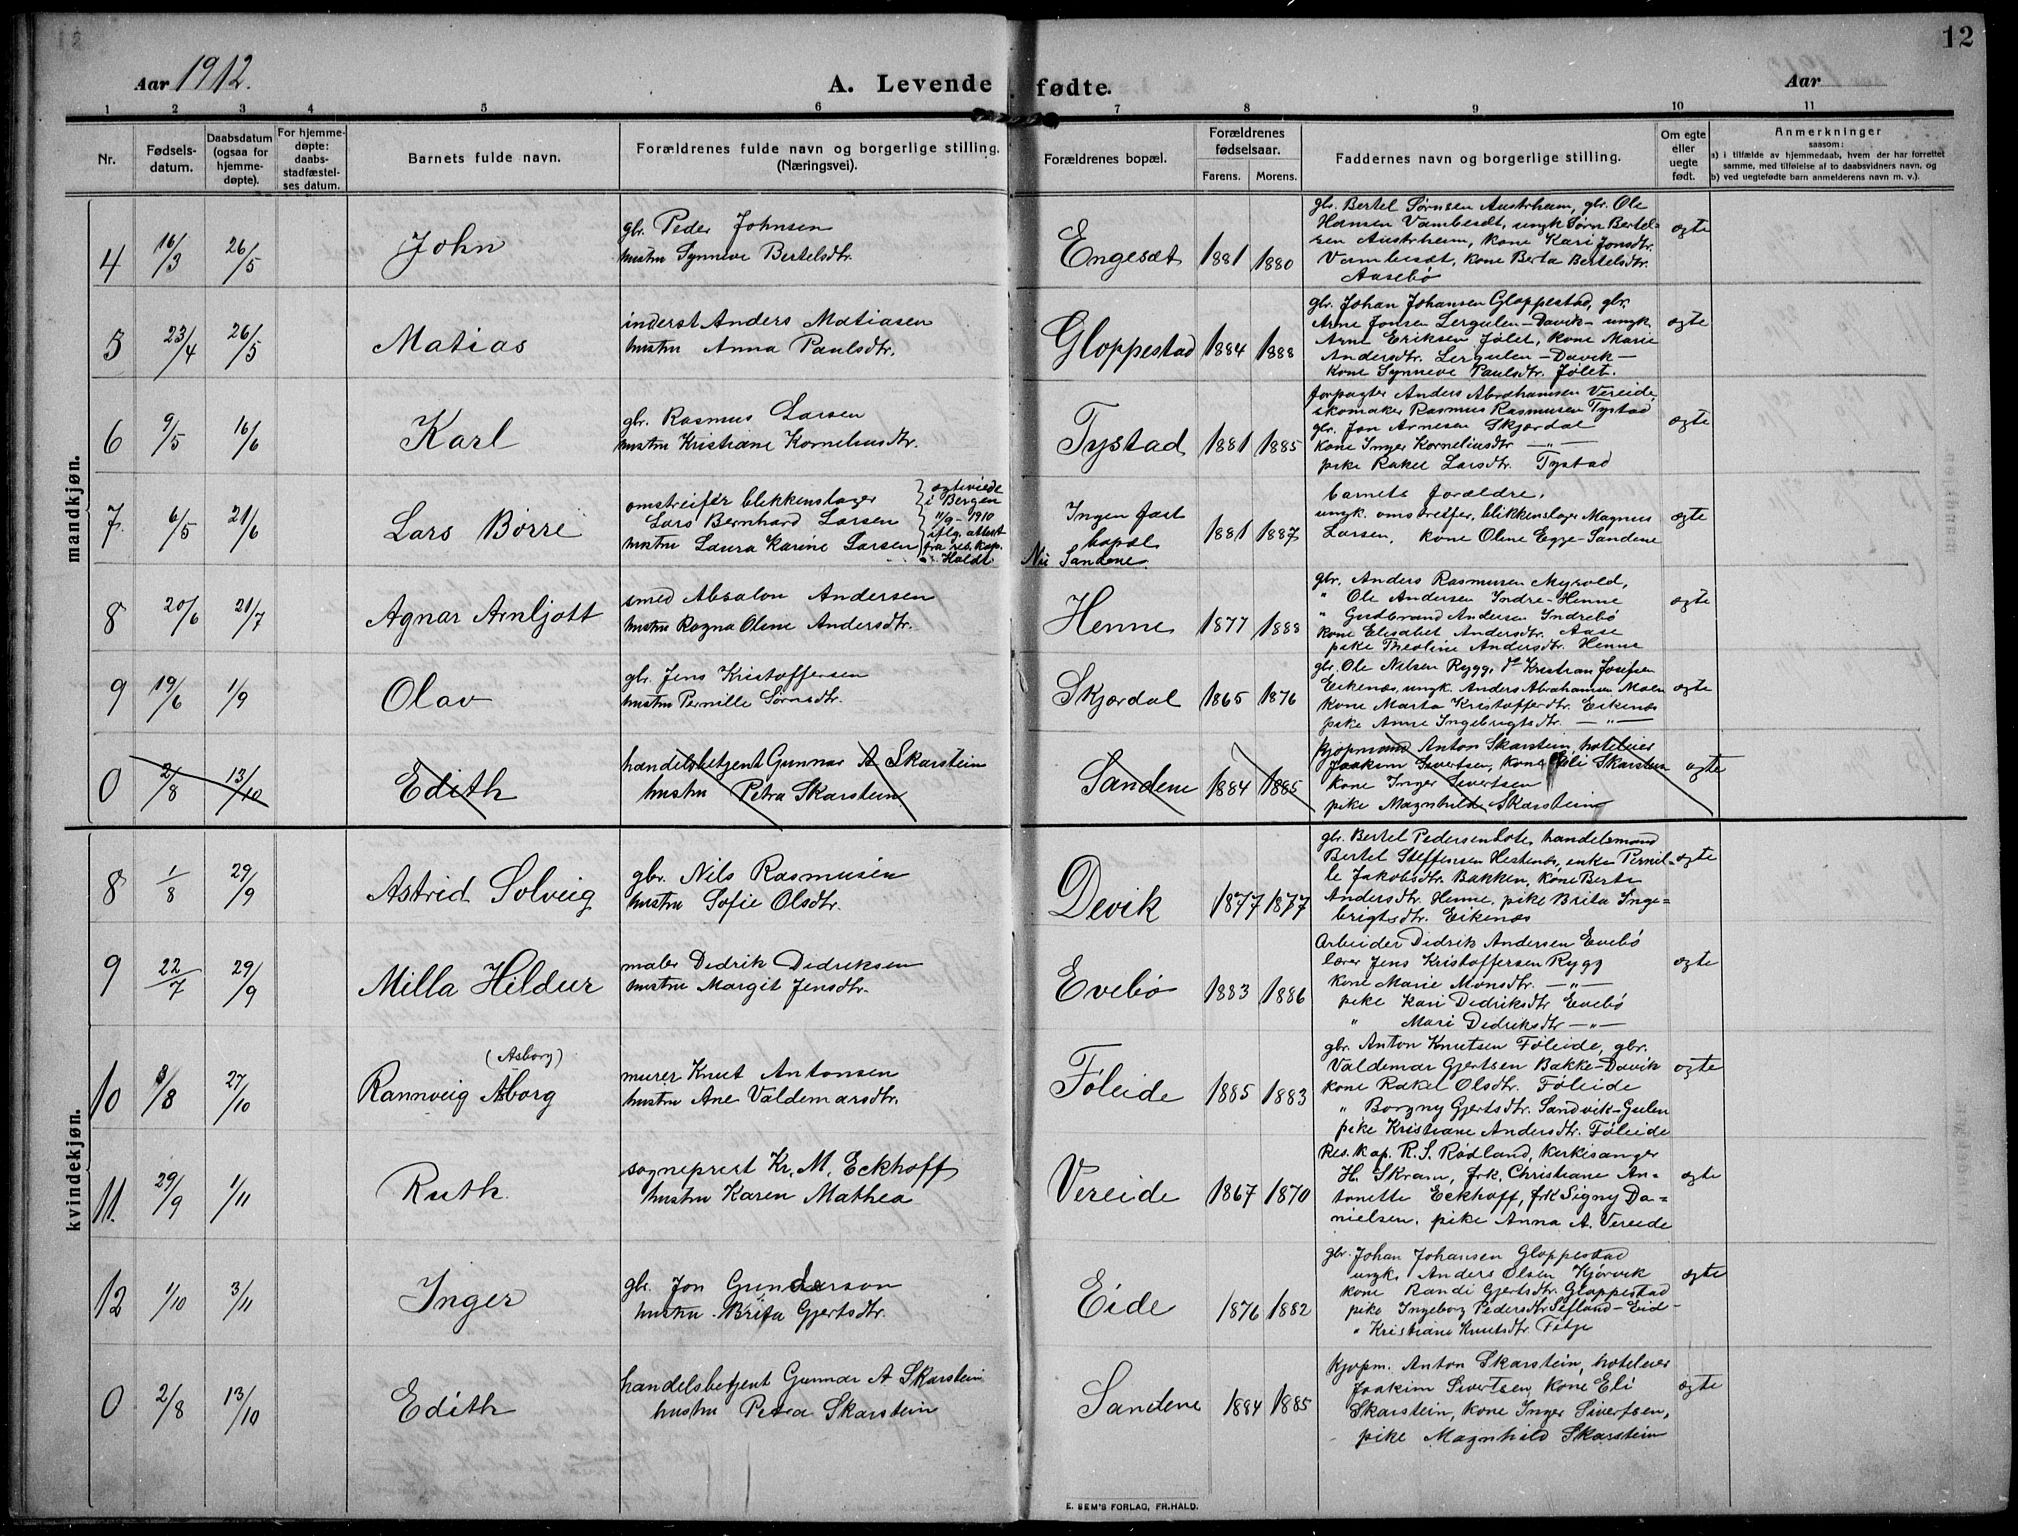 12
Aar 1912.
A. Levende fødte.
Aar
1 2 3 4 5 6 7 8 9 10 11
Nr.
Fødsels-
datum.
Daabsdatum
(ogsaa for
hjemme-
døpte).
For hjemme-
døpte:
daabs-
stadfæstel-
ses datum.
Barnets fulde navn.
Forældrenes fulde navn og borgerlige stilling.
(Næringsvei).
Forældrenes bopæl.
Forældrenes
fødselsaar.
Farens. Morens.
Faddernes navn og borgerlige stilling.
Om egte
eller
uegte
født.
Anmerkninger
saasom:
a) i tilfælde av hjemmedaab, hvem der har forrettet
samme, med tilføielse af to daabsvidners navn, og
b) ved uegtefødte barn anmelderens navn m. v.).
mandkjøn.
4 16/3 26/5 John
gbr. Peder Johnsen
hustru Synneve Bertelsdtr.
Engesæt 1881 1880
gbr. Bertel Sørnsen Austrheim, gbr. Ole
Hansen Vambesæt, ungk Sørn Bertel-
sen Austrheim, kone Kari Jonsdtr.
Vambesæt, kone Berta Bertelsdtr.
Aasebø
egte
5 23/4 26/5 Matias
inderst Anders Matiasen
hustru Anna Paulsdtr.
Gloppestad 1884 1888
gbr. Johan Johansen Gloppestad, gbr.
Arne Jonsen Lergulen-Davik- ungk.
Arne Eriksen Jølet, kone Marie
Andersdtr. Lergulen-Davik-
kone Synneve Paulsdtr. Jølet.
egte
6 9/5 16/6 Karl
gbr. Rasmus Larsen
hustru Kristiane Korneliusdtr.
Tystad 1881 1885
forpagter Anders Abrahamsen Vereide,
skomaker Rasmus Rasmusen Tystad
gbr. Jon Arnesen Skjørdal
kone Inger Korneliusdtr. — " —
pike Rakel Larsdtr. Tystad
egte
7 6/5 21/6 Lars Børre
omstreifer blikkenslager
Lars Bernhard Larsen
hustru Laura Karine Larsen
egteviede
i Bergen
11/9-1910
iflg. attest
fra res. kap.
Holdt
Ingen fast
bopæl
Nu Sandene.
1881 1887
barnets forældre,
ungk. omstreifer, blikkenslager Magnus
Larsen, kone Oline Egge-Sandene
egte
8 20/6 21/7 Agnar Arnljott
smed Absalon Andersen
hustru Ragna Oline Andersdtr.
Henne 1877 1888
gbr. Anders Rasmusen Myrold,
" Ole Andersen Indre-Henne
" Gudbrand Andersen Indrebø
kone Elisabet Andersdtr. Aase
pike Theoline Andersdtr. Henne
egte
9 19/6 1/9 Olav
gbr. Jens Kristoffersen
hustru Pernille Sørnsdtr.
Skjørdal 1865 1876
gbr. Ole Nilsen Rygg, do Kristian Josefsen
Eikenæs, ungk. Anders Abrahamsen Moen
kone Marta Kristofferdtr. Eikenæs
pike Anne Ingebrigtsdtr. — " —
egte
0 2/8 13/10 Edith
handelsbetjent Gunnar A Skarstein
hustru Petra Skarstein
Sandene 1884 1885
kjøpmand Anton Skarstein, hoteleier
Joakim Sivertsen, kone Eli Skarstein
kone Inger Sivertsen
pike Magnhild Skarstein
egte
kvindekjøn.
8 1/8 29/9 Astrid Solveig
gbr. Nils Rasmusen
hustru Sofie Olsdtr.
Devik 1877 1877
gbr. Bertel Pedersen Lote, handelsmand
Bertel Steffensen Hestenes, enke Pernil-
le Jakobsdtr. Bakken, kone Berte
Andersdtr. Henne, pike Brita Inge-
brigtsdtr. Eikenæs
egte
9 22/7 29/9 Milla Hildur
maler Didrik Didriksen
hustru Margit Jensdtr.
Evebø 1883 1886
Arbeider Didrik Andersen Evebø
lærer Jens Kristoffersen Rygg
kone Marie Monsdtr. — " —
pike Kari Didriksdtr Evebø
" Mari Didriksdtr — " —
egte
(Asborg)
10 3/8 27/10 Rannveig Åsborg
murer Knut Antonsen
hustru Ane Valdemarsdtr.
Føleide 1885 1883
gbr. Anton Knutsen Føleide, gbr.
Valdemar Gjertsen Bakke-Davik
kone Rakel Olsdtr. Føleide
" Borgny Gjertsdtr. Sandvik-Gulen
pike Kristiane Andersdtr. Føleide
egte
11. 29/9 1/11 Ruth
sogneprest Kr. M. Eckhoff
hustru Karen Mathea
Vereide 1867 1870
Res. kap. R. S. Rødland, kirkesanger
H. Skram, frk. Christiane An-
tonette Eckhoff, frk Signy Da-
nielsen, pike Anna A. Vereide
egte
12 1/10 3/11 Inger
gbr. Jon Gunderson
hustru Brita Gjertsdtr.
Eide 1876 1882
gbr. Johan Johansen Gloppestad
ungk. Anders Olsen Kjørvik
kone Randi Gjertsdtr. Gloppestad
pike Ingeborg Pedersdtr Sefland-Eid-
" Kristiane Knutsdtr. Fitje
egte
0 2/8 13/10 Edith
handelsbetjent Gunnar A Skarstein
hustru Petra Skarstein
Sandene 1884 1885
kjøpm. Anton Skarstein, hoteleier
Joakim Sivertsen, kone Eli
Skarstein, kone Inger Sivertsen,
pike Magnhild Skarstein
egte
E. SEM'S FORLAG, FR.HALD.